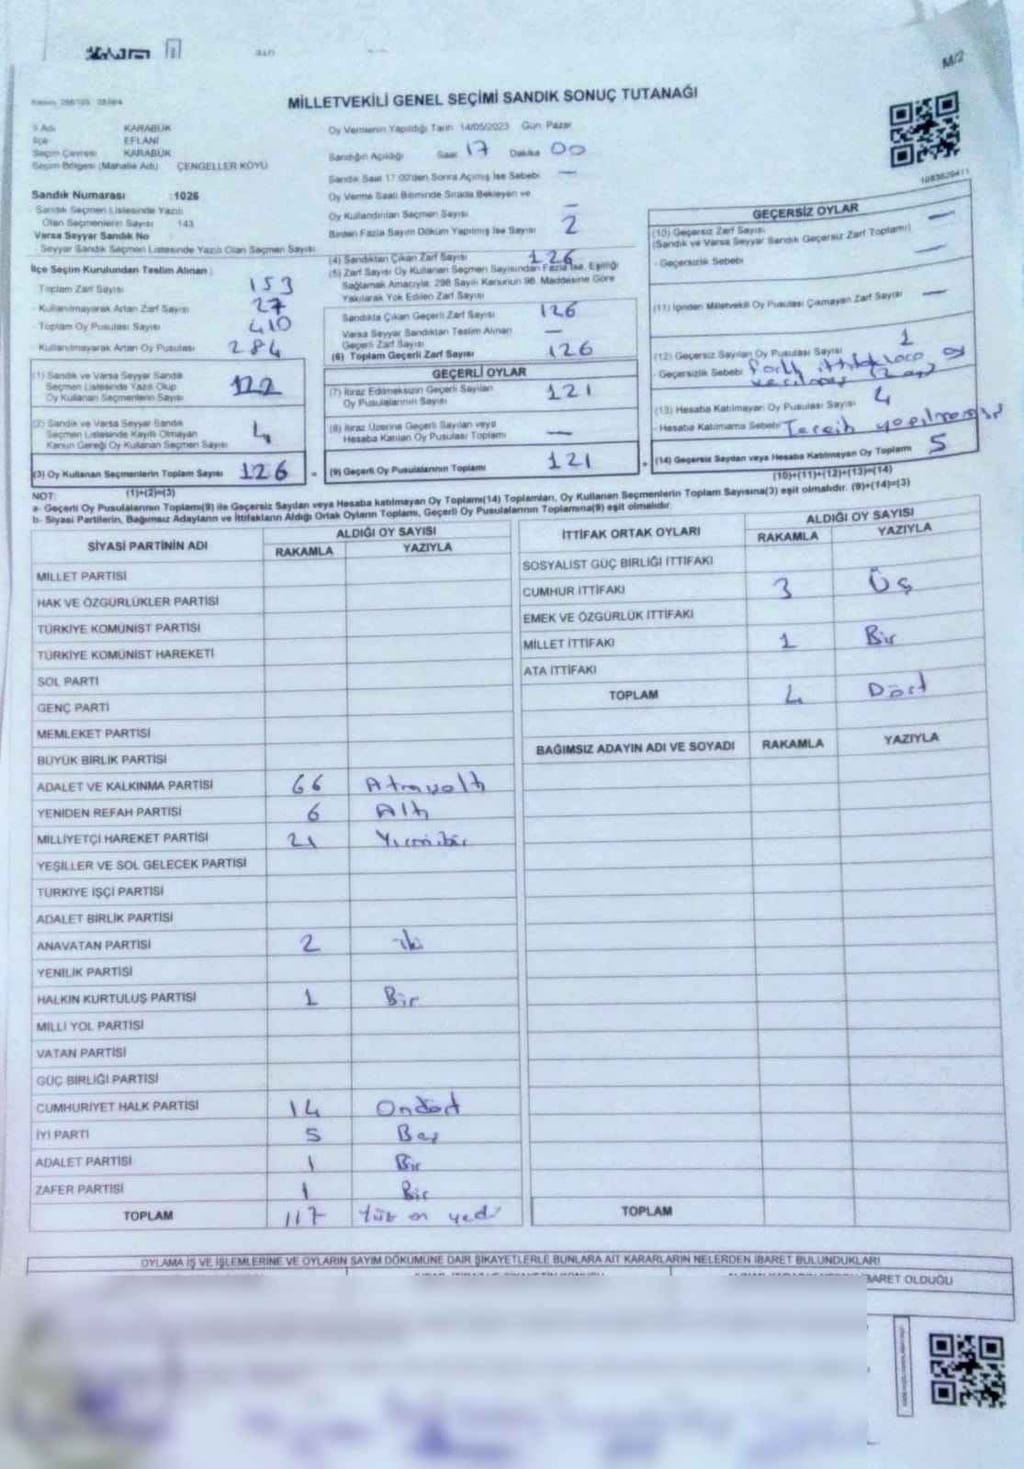 M/2
MİLLETVEKİLİ GENEL SEÇİMİ SANDIK SONUÇ TUTANAĞI
KARABÜK
EFLANİ
Seçim Çevresi KARABÜK
Seçim Bölgesi (Mahalle Adı) ÇENGELLER KÖYÜ
Oy Vermenin Yapıldığı Tarih 14/05/2023 Gün Pazar
Sandığın Açıldığı Saat 17 Dakika 00
Sandık Saat 17:00'den Sonra Açılmış İse Sebebi —
Oy Verme Saati Bitiminde Sırada Bekleyen ve
Oy Kullandırılan Seçmen Sayısı —
Birden Fazla Sayım Döküm Yapılmış İse Sayısı 2
Sandık Numarası : 1026
Sandık Seçmen Listesinde Yazılı
Olan Seçmenlerin Sayısı 143
Varsa Seyyar Sandık No
Seyyar Sandık Seçmen Listesinde Yazılı Olan Seçmen Sayısı
İlçe Seçim Kurulundan Teslim Alınan :
Toplam Zarf Sayısı 153
Kullanılmayarak Artan Zarf Sayısı 27
Toplam Oy Pusulası Sayısı 410
Kullanılmayarak Artan Oy Pusulası 284
(1) Sandık ve Varsa Seyyar Sandık
Seçmen Listesinde Yazılı Olup
Oy Kullanan Seçmenlerin Sayısı 122
(2) Sandık ve Varsa Seyyar Sandık
Seçmen Listesinde Kayıtlı Olmayan
Kanun Gereği Oy Kullanan Seçmen Sayısı 4
(3) Oy Kullanan Seçmenlerin Toplam Sayısı 126
(1)+(2)=(3)
(4) Sandıktan Çıkan Zarf Sayısı 126
(5) Zarf Sayısı Oy Kullanan Seçmen Sayısından Fazla İse, Eşitliği
Sağlamak Amacıyla; 298 Sayılı Kanunun 98. Maddesine Göre
Yakılarak Yok Edilen Zarf Sayısı
Sandıkta Çıkan Geçerli Zarf Sayısı 126
Varsa Seyyar Sandıktan Teslim Alınan
Geçerli Zarf Sayısı —
(6) Toplam Geçerli Zarf Sayısı 126
GEÇERLİ OYLAR
(7) İtiraz Edilmeksizin Geçerli Sayılan
Oy Pusulalarının Sayısı 121
(8) İtiraz Üzerine Geçerli Sayılan veya
Hesaba Katılan Oy Pusulası Toplamı —
= (9) Geçerli Oy Pusulalarının Toplamı 121
GEÇERSİZ OYLAR
(10) Geçersiz Zarf Sayısı —
(Sandık ve Varsa Seyyar Sandık Geçersiz Zarf Toplamı)
- Geçersizlik Sebebi —
(11) İçinden Milletvekili Oy Pusulası Çıkmayan Zarf Sayısı —
(12) Geçersiz Sayılan Oy Pusulası Sayısı 1
- Geçersizlik Sebebi Farklı ittifaklara oy
(13) Hesaba Katılmayan Oy Pusulası Sayısı 4
- Hesaba Katılmama Sebebi Tercih yapılmamış
+ (14) Geçersiz Sayılan veya Hesaba Katılmayan Oy Toplamı 5
(10)+(11)+(12)+(13)=(14)
NOT:
a- Geçerli Oy Pusulalarının Toplamı(9) ile Geçersiz Sayılan veya Hesaba katılmayan Oy Toplamı(14) Toplamları, Oy Kullanan Seçmenlerin Toplam Sayısına(3) eşit olmalıdır. (9)+(14)=(3)
b- Siyasi Partilerin, Bağımsız Adayların ve İttifakların Aldığı Ortak Oyların Toplamı, Geçerli Oy Pusulalarının Toplamına(9) eşit olmalıdır.
SİYASİ PARTİNİN ADI ALDIĞI OY SAYISI
RAKAMLA YAZIYLA
MİLLET PARTİSİ
HAK VE ÖZGÜRLÜKLER PARTİSİ
TÜRKİYE KOMÜNİST PARTİSİ
TÜRKİYE KOMÜNİST HAREKETİ
SOL PARTİ
GENÇ PARTİ
MEMLEKET PARTİSİ
BÜYÜK BİRLİK PARTİSİ
ADALET VE KALKINMA PARTİSİ 66
YENİDEN REFAH PARTİSİ 6 Altı
MİLLİYETÇİ HAREKET PARTİSİ 21 Yirmibir
YEŞİLLER VE SOL GELECEK PARTİSİ
TÜRKİYE İŞÇİ PARTİSİ
ADALET BİRLİK PARTİSİ
ANAVATAN PARTİSİ 2 iki
YENİLİK PARTİSİ
HALKIN KURTULUŞ PARTİSİ 1 Bir
MİLLİ YOL PARTİSİ
VATAN PARTİSİ
GÜÇ BİRLİĞİ PARTİSİ
CUMHURİYET HALK PARTİSİ 14 Ondört
İYİ PARTİ 5 Beş
ADALET PARTİSİ 1 Bir
ZAFER PARTİSİ 1 Bir
TOPLAM 117 Yüz on yedi
İTTİFAK ORTAK OYLARI ALDIĞI OY SAYISI
RAKAMLA YAZIYLA
SOSYALİST GÜÇ BİRLİĞİ İTTİFAKI
CUMHUR İTTİFAKI 3 Üç
EMEK VE ÖZGÜRLÜK İTTİFAKI
MİLLET İTTİFAKI 1 Bir
ATA İTTİFAKI
TOPLAM 4 Dört
BAĞIMSIZ ADAYIN ADI VE SOYADI RAKAMLA YAZIYLA
TOPLAM
OYLAMA İŞ VE İŞLEMLERİNE VE OYLARIN SAYIM DÖKÜMÜNE DAİR ŞİKAYETLERLE BUNLARA AİT KARARLARIN NELERDEN İBARET BULUNDUKLARI
BARET OLDUĞU